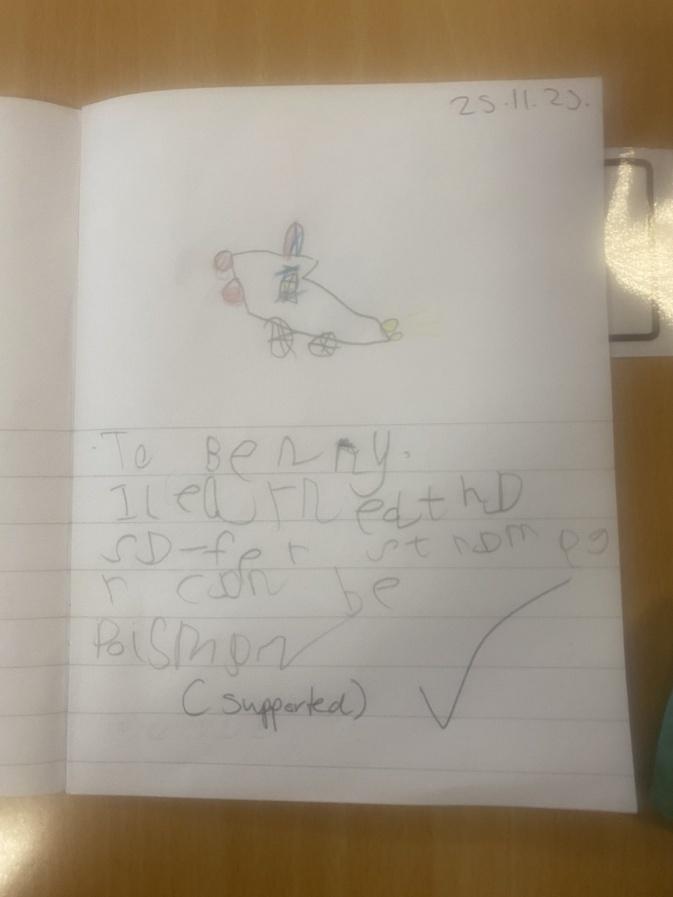 25.11.25.
To Benny.
I learned thD
SD-fer stnDm eg
r can be
Poismon
(supported)